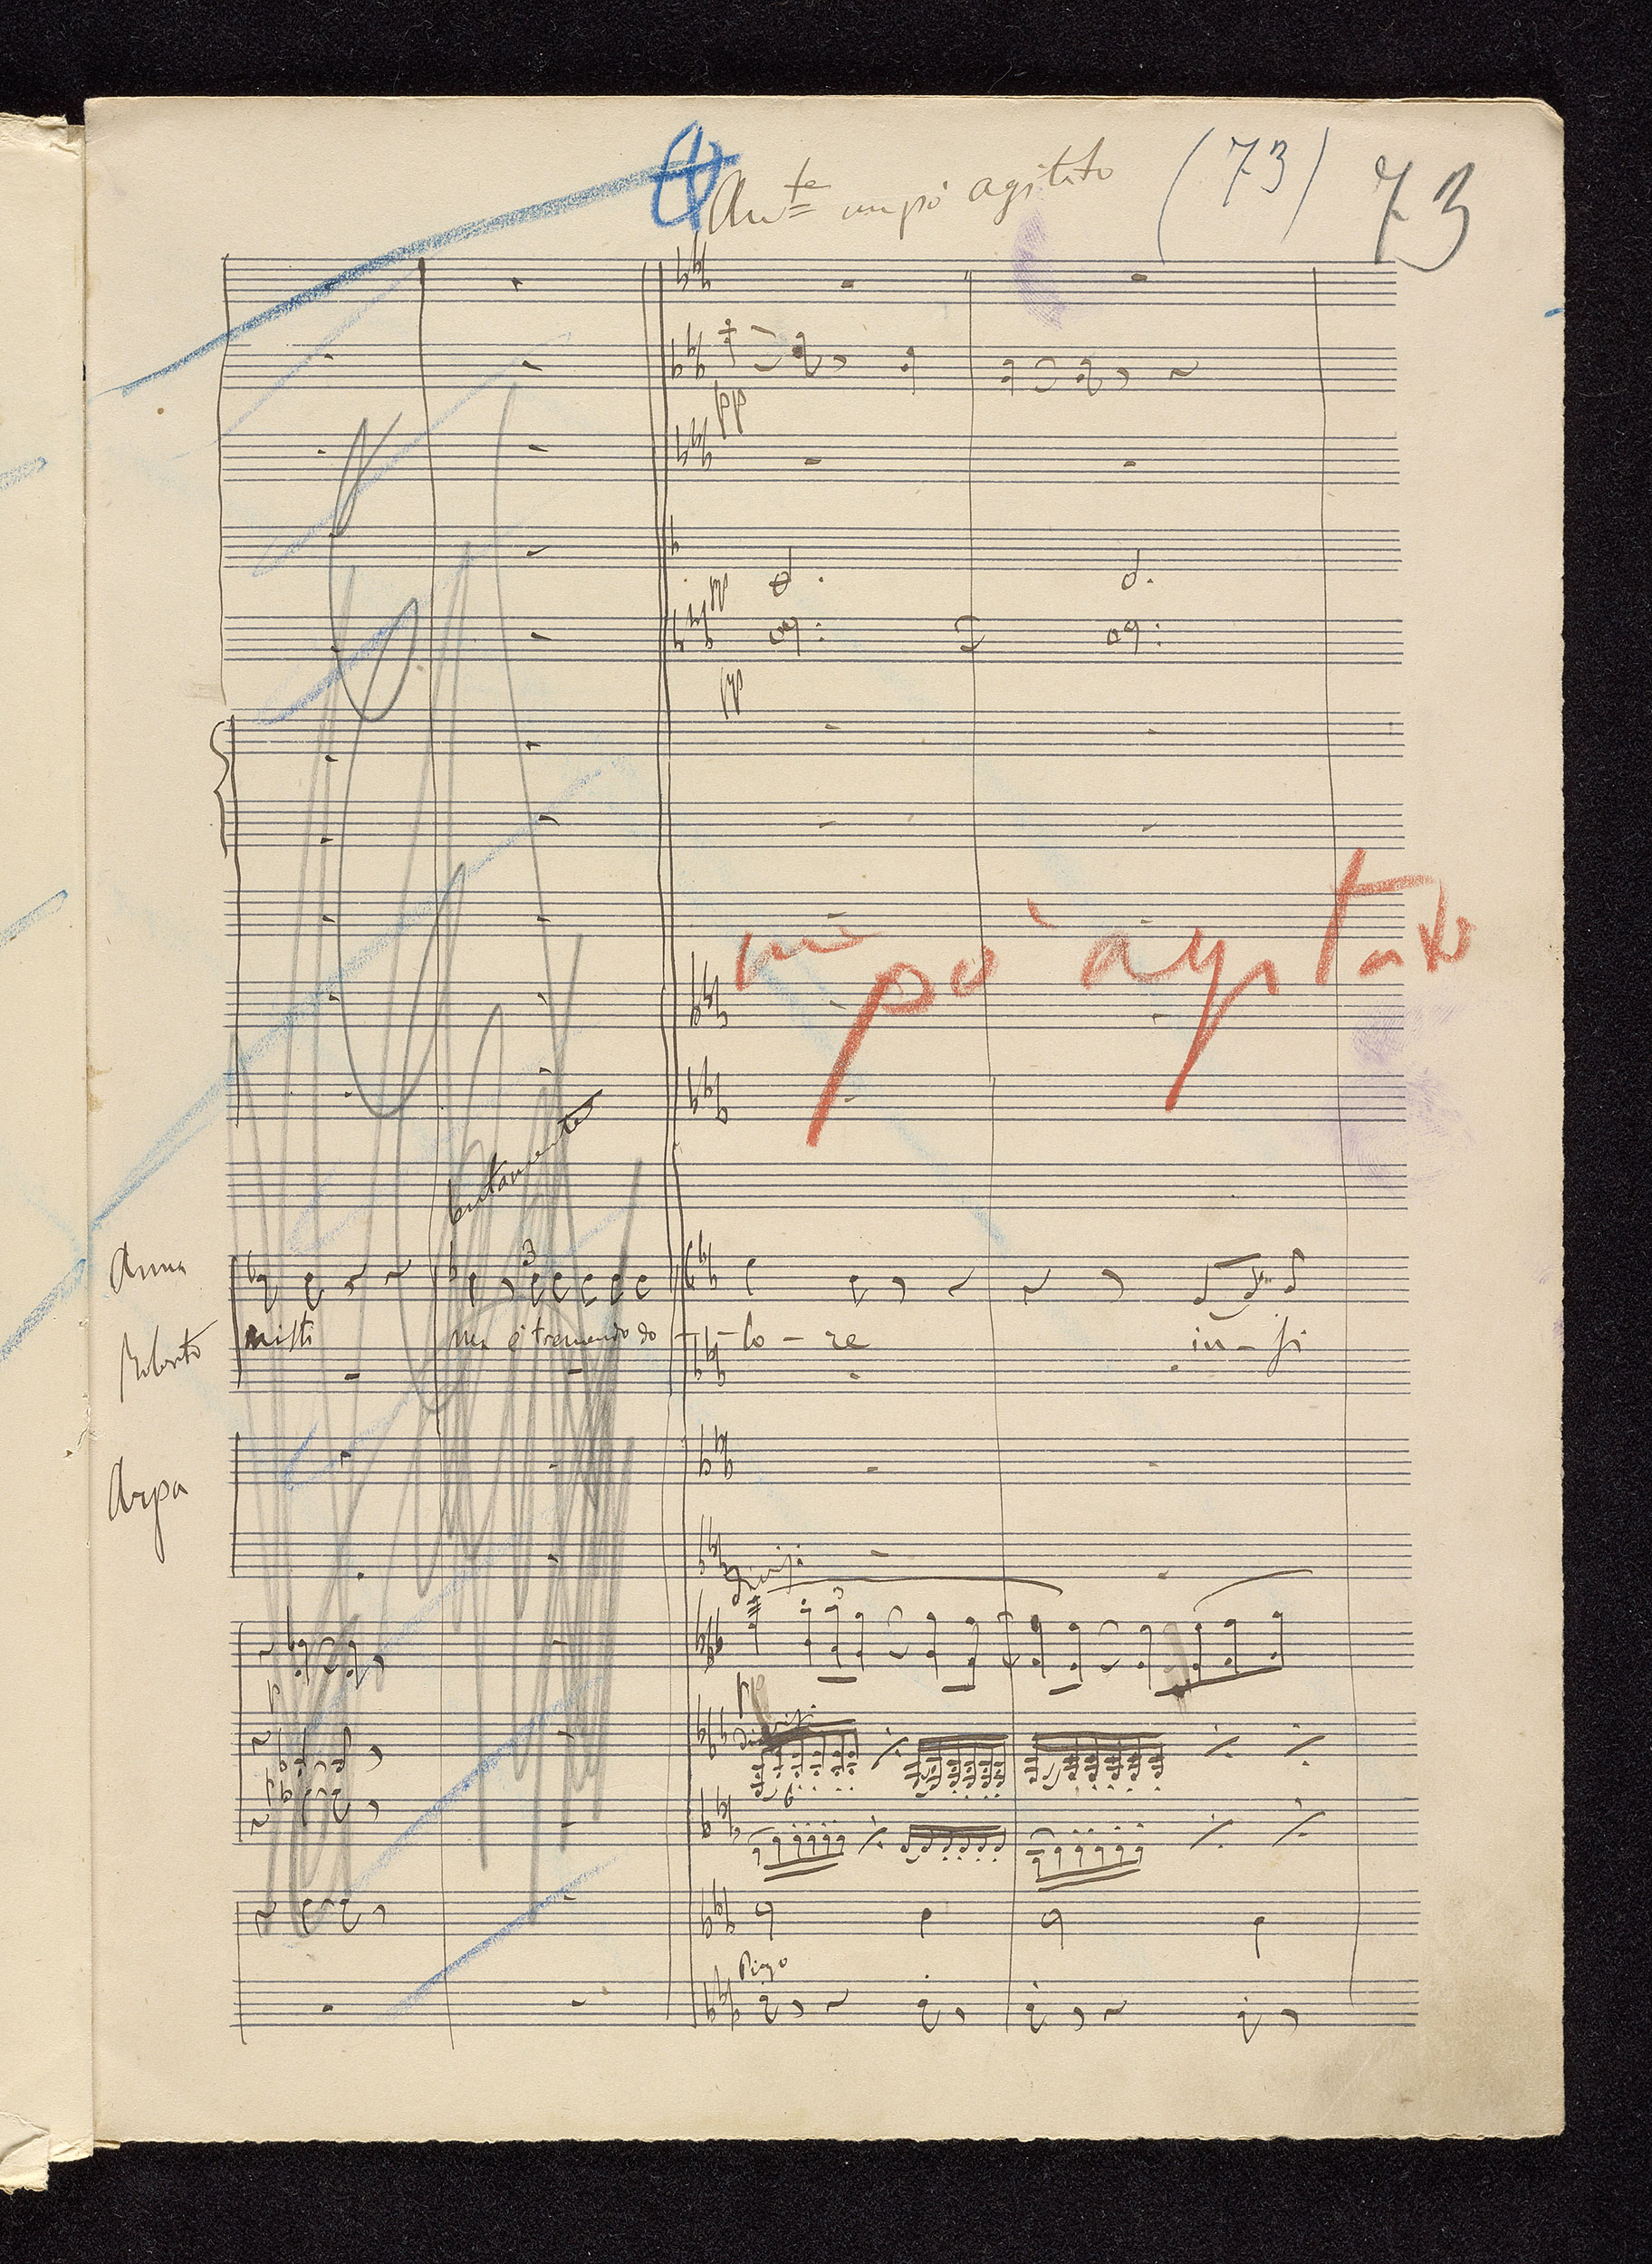 Ante un pò agitato (73) 73
pp
pp
pp
un pò agitato
lentamente
Anna
3
Roberto nisti ma è tremendo do lo - re in - fi
Arpa
divisi
3
p pp
divisi
p
6
Pizzo